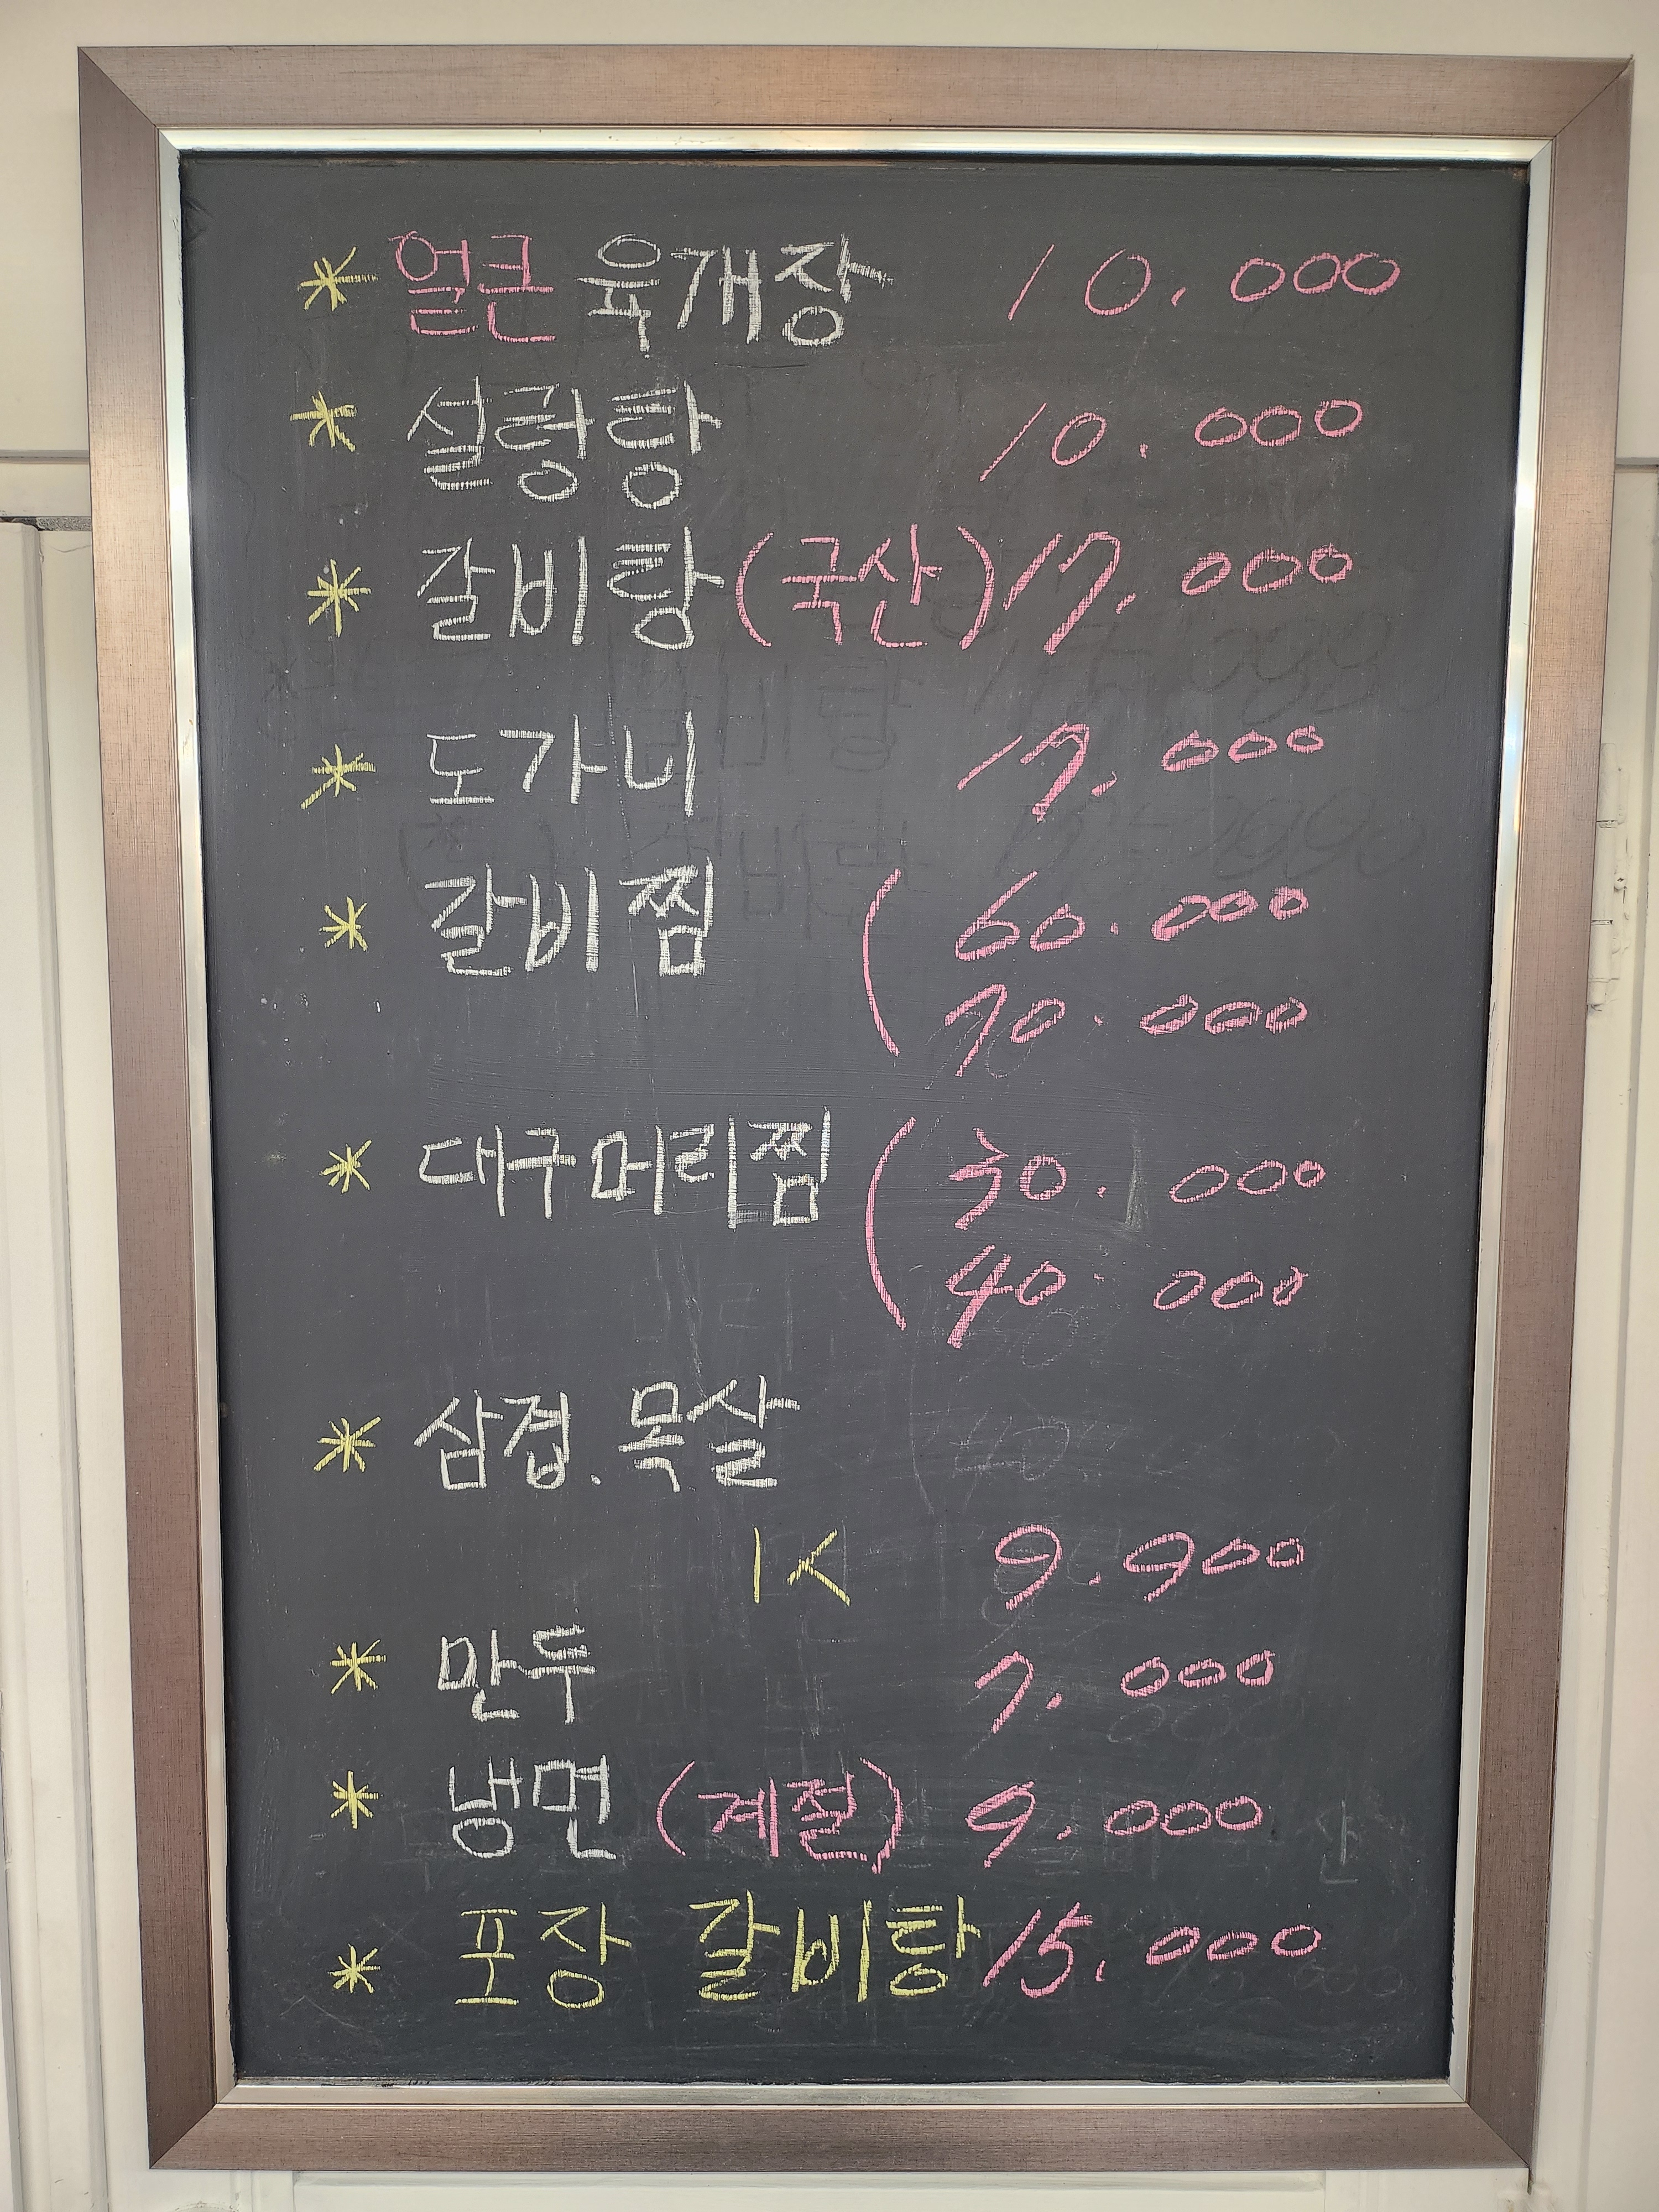 * 얼큰 육개장 10.000
* 설렁탕 10.000
* 갈비탕 (국산) 17.000
* 도가니 17.000
* 갈비찜 ( 60.000
70.000
* 대구머리찜 ( 30.000
40.000
* 삼겹.목살
1K 9.900
* 만두 7.000
* 냉면 (계절) 9.000
* 포장 갈비탕 15.000